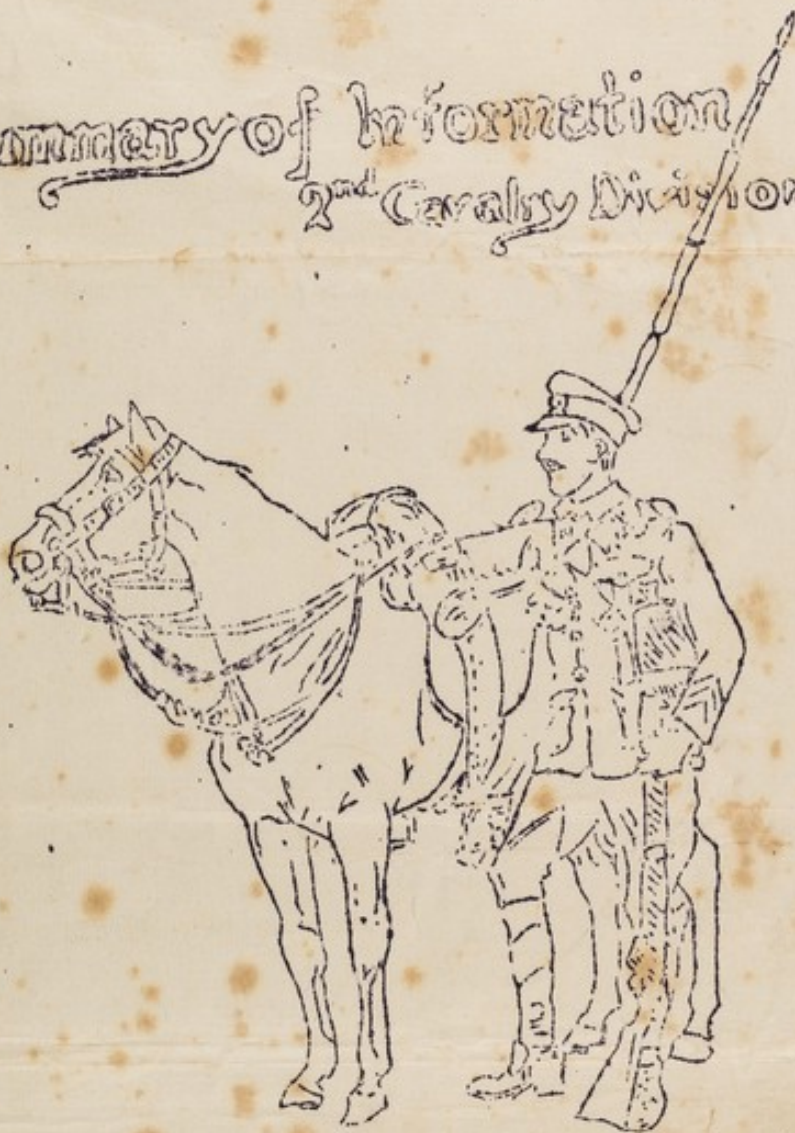 ummary of Information
2nd Cavalry Division